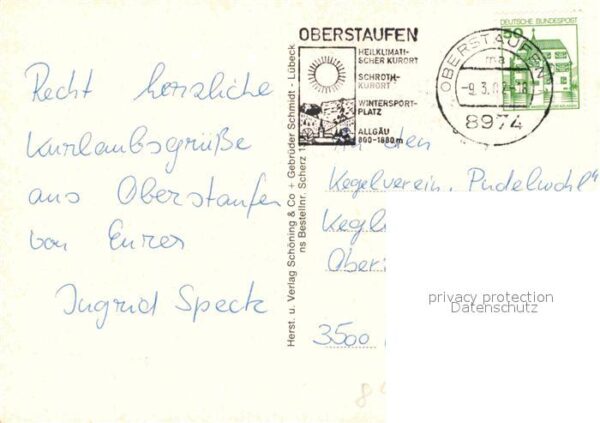 Recht herzliche
Kurlaubsgrüße
aus Oberstaufen
von Eurer
Ingrid Speck
Herst. u. Verlag Schöning & Co + Gebrüder Schmidt - Lübeck
ns Bestellnr. Scherz 1
OBERSTAUFEN
HEILKLIMATI-
SCHER KURORT
SCHROTH-
KURORT
WINTERSPORT-
PLATZ
ALLGÄU
800-1880m
OBERSTAUFEN
ma
-9.3.82-18
8974
DEUTSCHE BUNDESPOST
50
An den
Kegelverein "Pudelwohl"
3500
privacy protection
Datenschutz